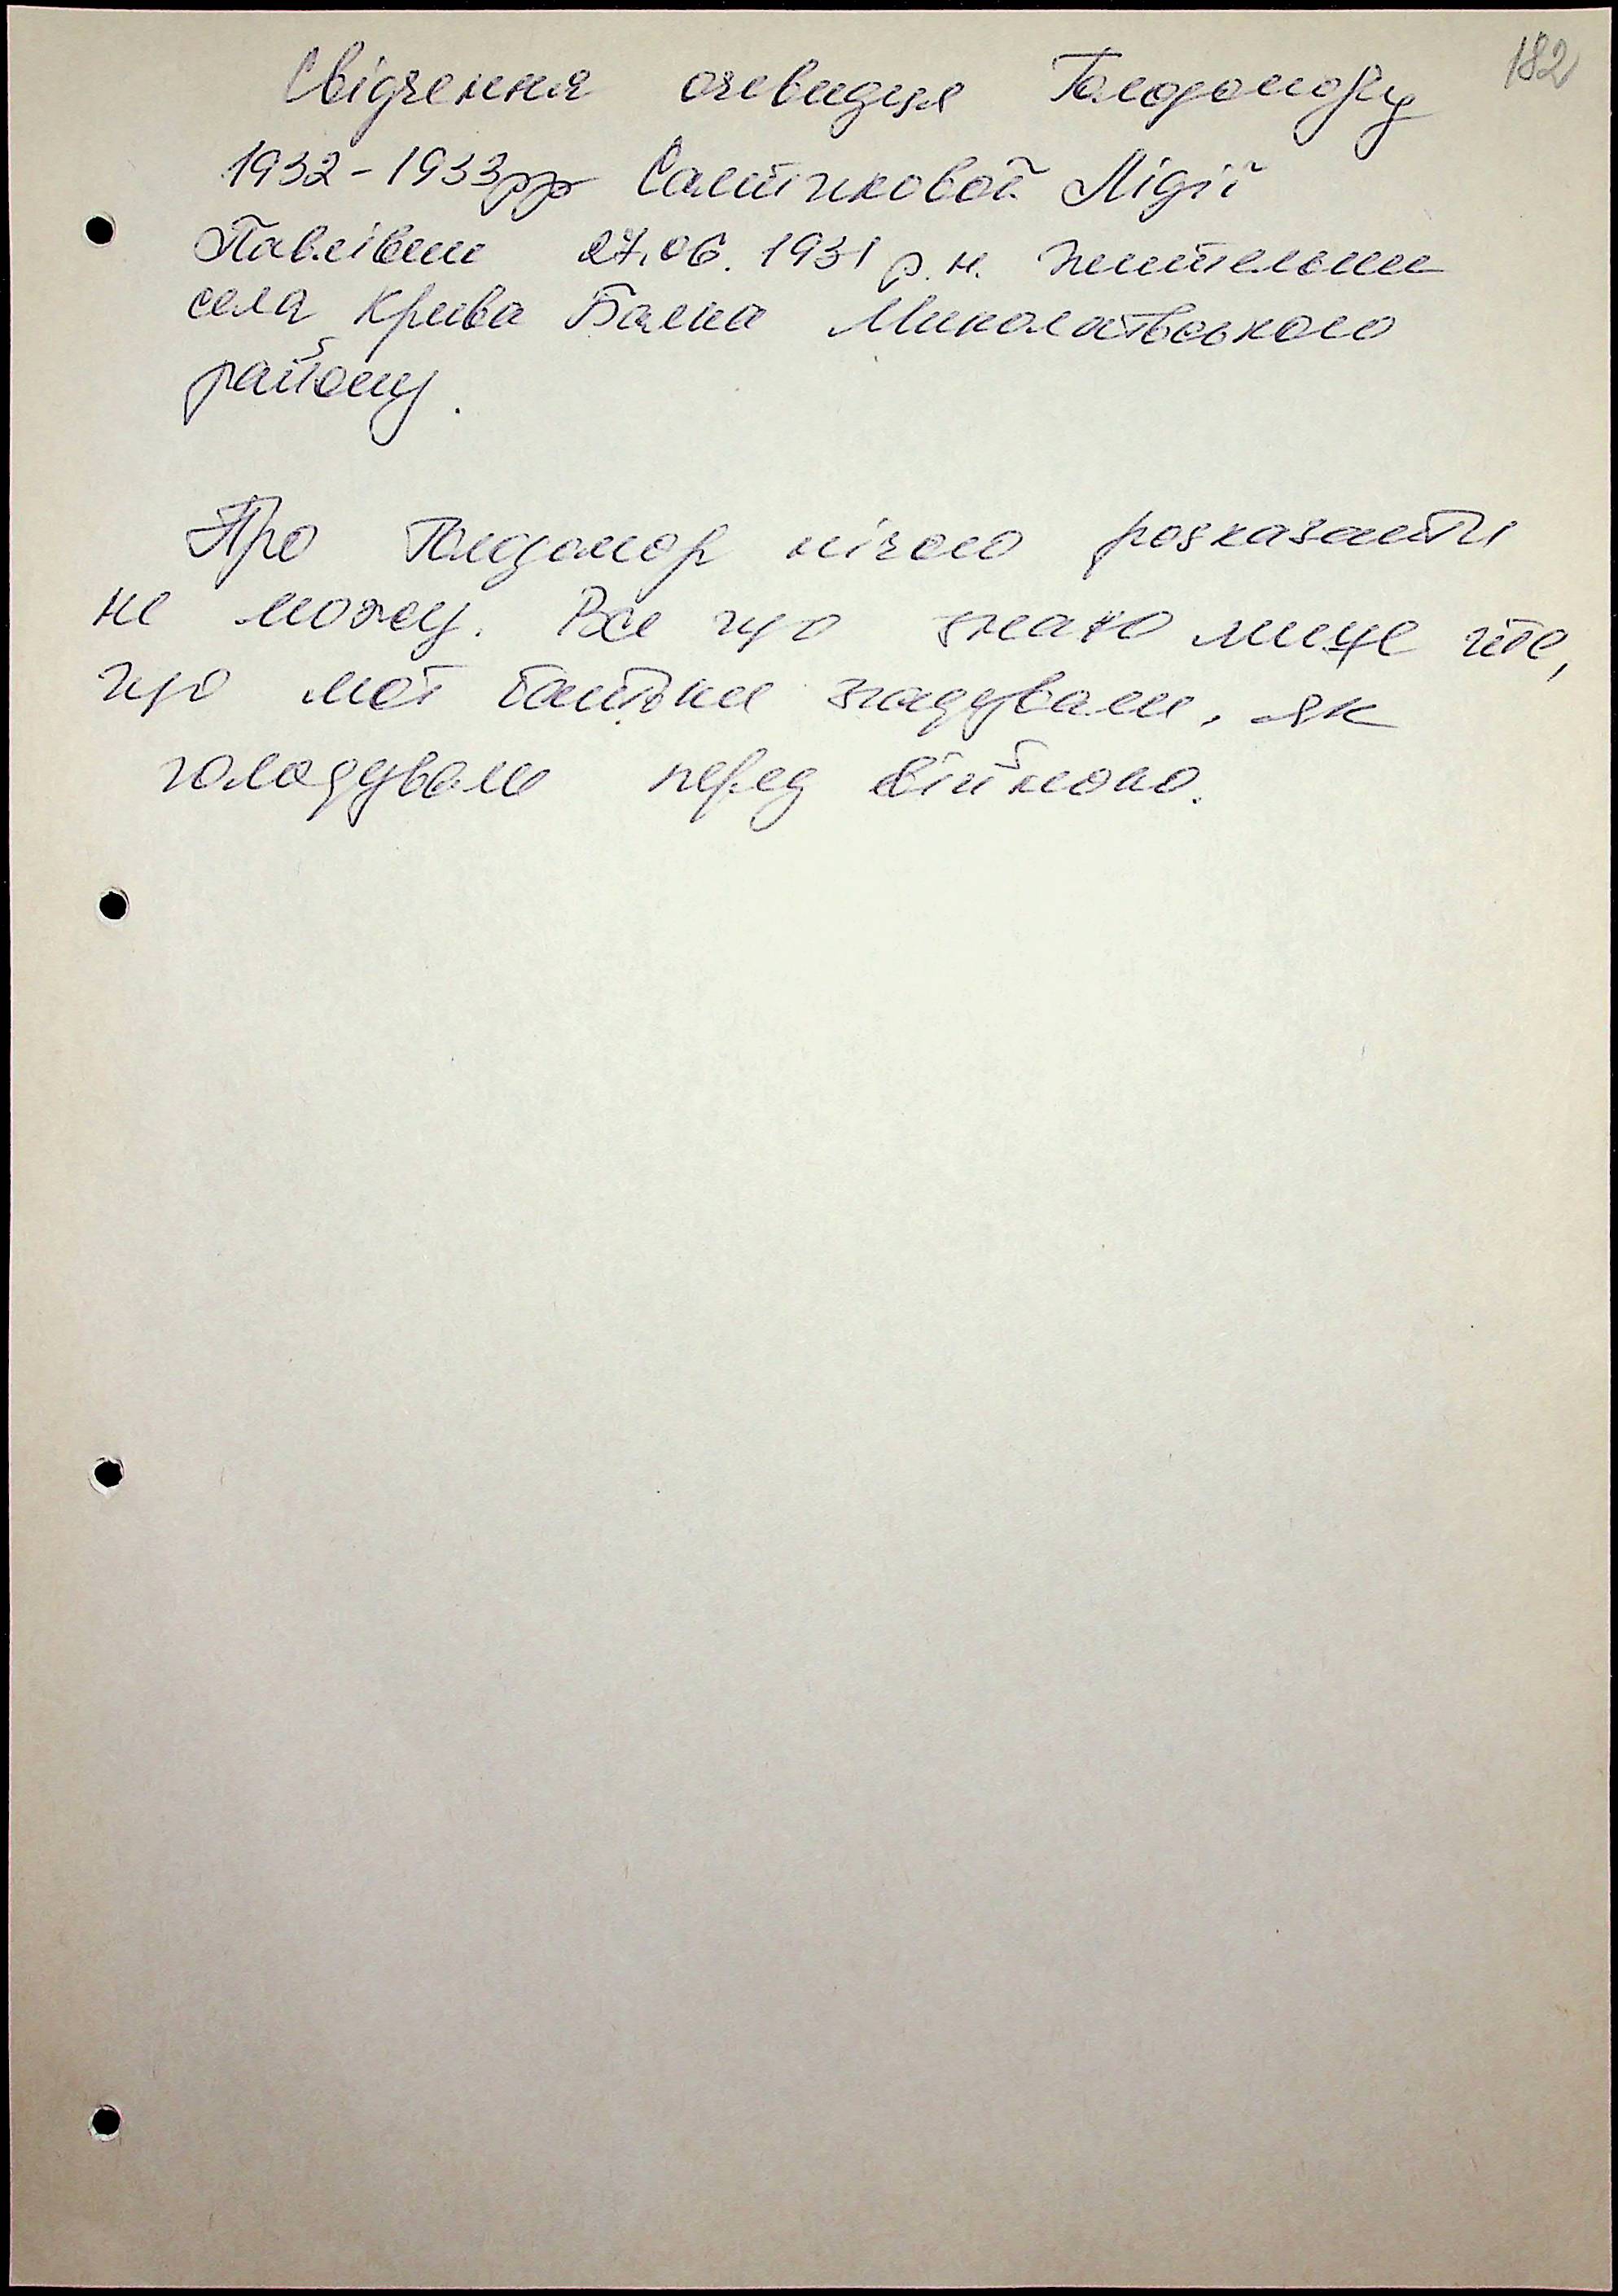 182
Свідчення очевидця Голодомору
1932-1933рр Салтиковой Лідії
Павлівни 27.06.1931 р.н. жительки
села Крива Балка Миколаївського
району.
Про Голодомор нічого розказати
не можу. Все що знаю лише те,
що мої батьки згадували, як
голодували перед війною.